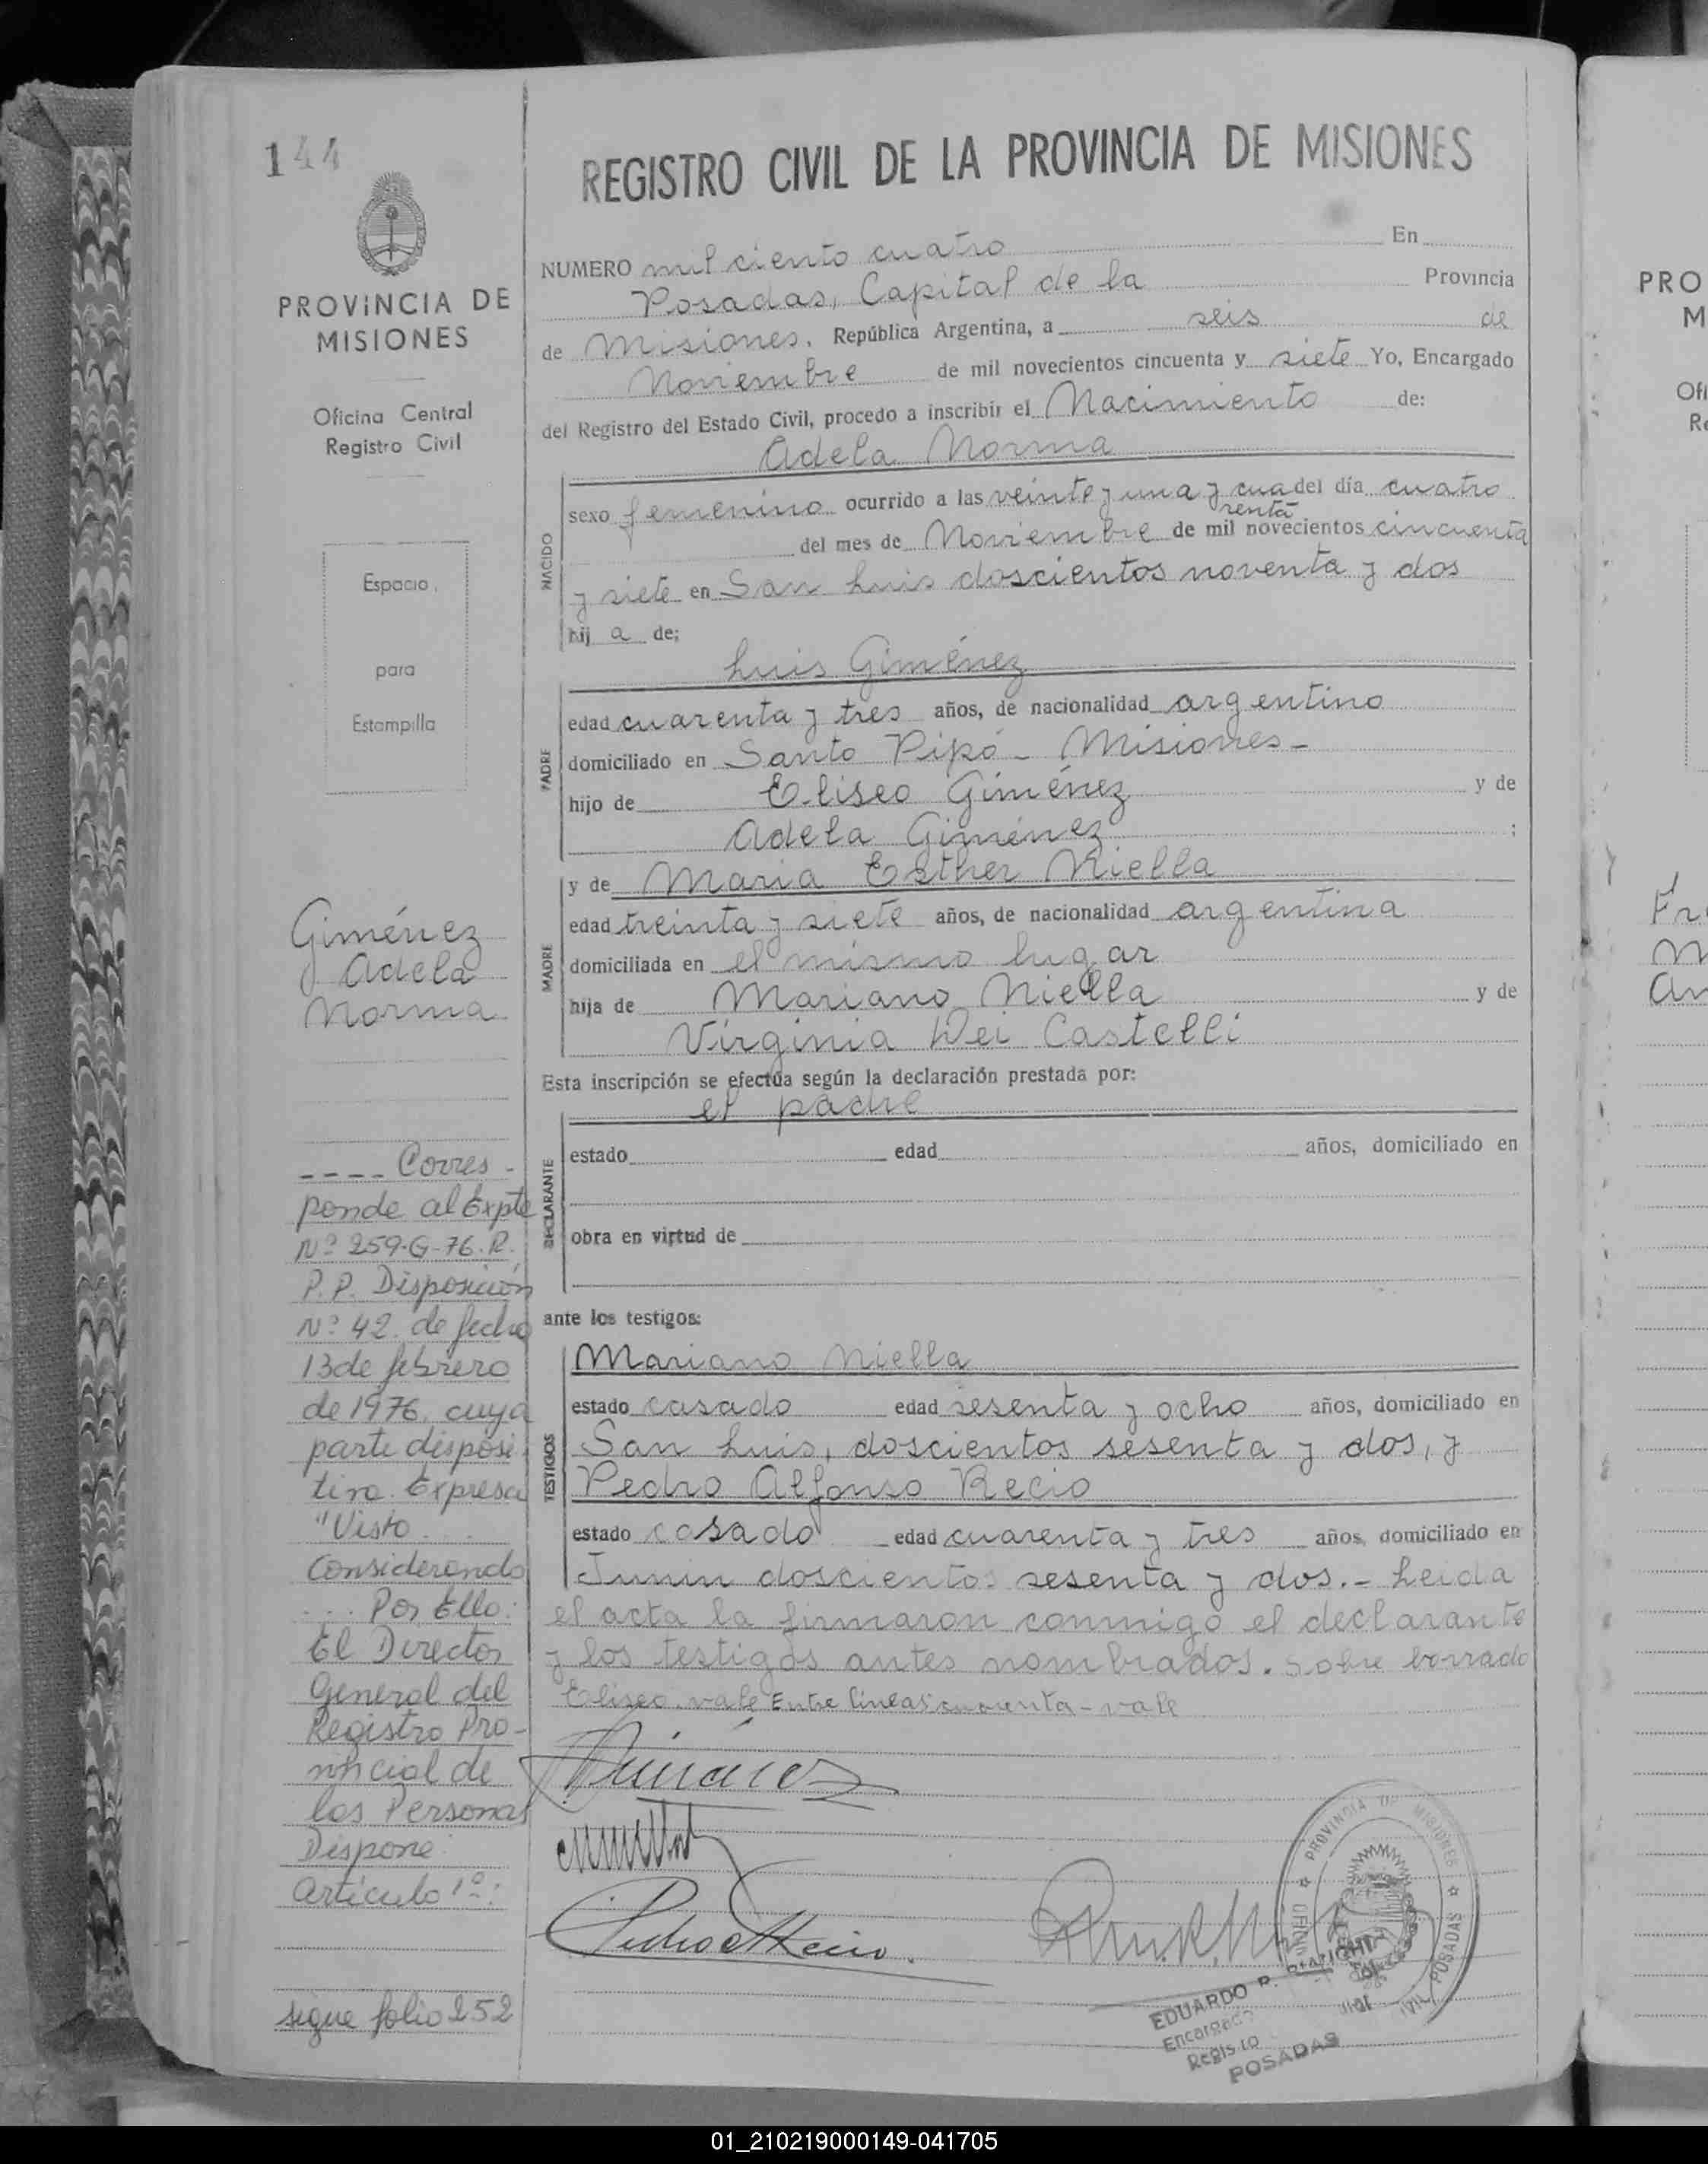 144
PROVINCIA DE
MISIONES
Oficina Central
Registro Civil
Espacio
para
Estampilla
Giménez
Adela
Norma
---- Corres-
ponde al Expte
Nº 259-G-76. R.
P.P. Disposición
Nº 42 de fecha
13 de febrero
de 1976. cuya
parte disposi
tiva Expresa
"Visto ...
Considerando
... Por Ello:
El Director
General del
Registro Pro-
vincial de
las Personas
Dispone
Artículo 1º:
sigue folio 252
REGISTRO CIVIL DE LA PROVINCIA DE MISIONES
NUMERO mil ciento cuatro En
Posadas, Capital de la Provincia
de Misiones. República Argentina, a seis de
Noviembre de mil novecientos cincuenta y siete Yo, Encargado
del Registro del Estado Civil, procedo a inscribir el Nacimiento de:
Adela Norma
NACIDO
sexo femenino ocurrido a las veinte y una y cua del día cuatro
renta
del mes de Noviembre de mil novecientos cincuenta
y siete en San Luis doscientos noventa y dos
hij a de;
Luis Giménez
PADRE
edad cuarenta y tres años, de nacionalidad argentino
domiciliado en Santo Pipó - Misiones -
hijo de Eliseo Giménez y de
Adela Giménez ;
y de Maria Esther Niella
MADRE
edad treinta y siete años, de nacionalidad argentina
domiciliada en el mismo lugar
hija de Mariano Niella y de
Virginia Dei Castelli
Esta inscripción se efectúa según la declaración prestada por:
el padre
DECLARANTE
estado edad años, domiciliado en
obra en virtud de
ante los testigos:
TESTIGOS
Mariano Niella
estado casado edad sesenta y ocho años, domiciliado en
San Luis, doscientos sesenta y dos, y
Pedro Alfonso Recio
estado casado edad cuarenta y tres años, domiciliado en
Junin doscientos sesenta y dos.- Leida
el acta la firmaron conmigo el declarante
y los testigos antes nombrados. Sobre borrado
Eliseo. vale Entre lineas cuarenta - vale
Pedro A Recio.
PROVINCIA DE MISIONES
POSADAS
EDUARDO R.
Encargado
Registro
POSADAS
PRO
M
Ofi
Re
01_210219000149-041705